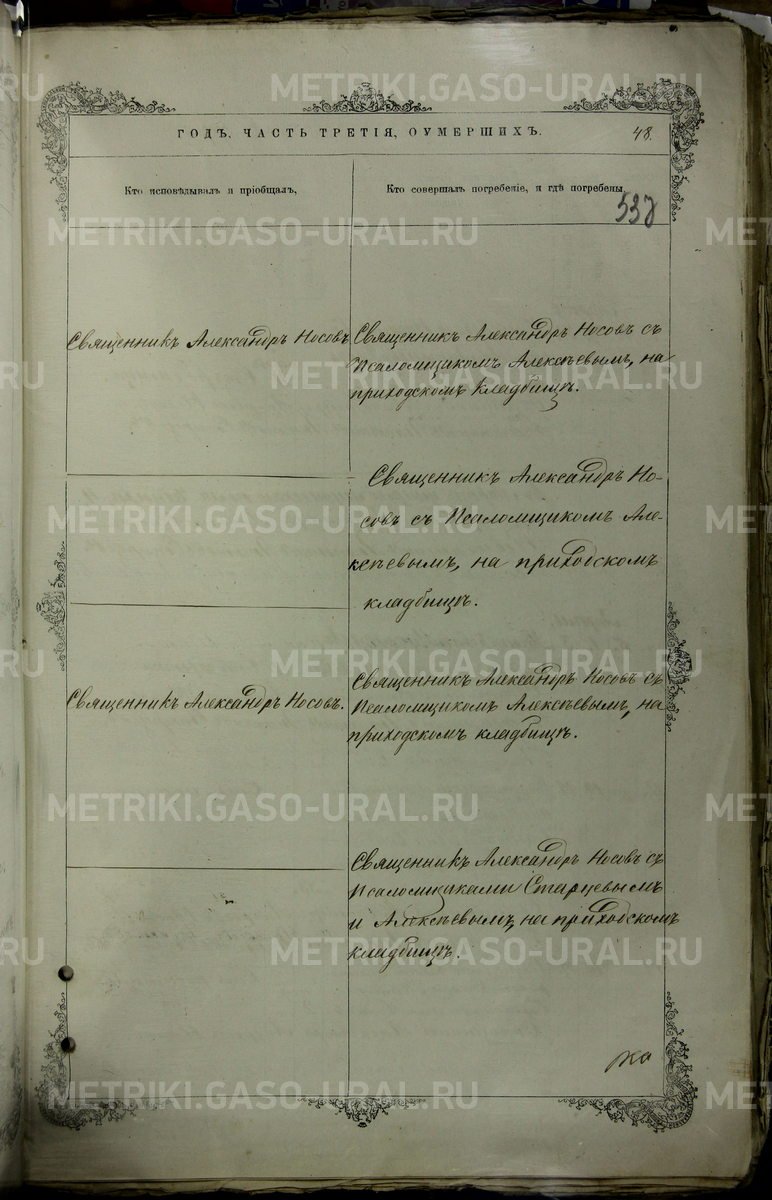 METRIKI.GASO-URAL.RU
ГОДЪ, ЧАСТЬ ТРЕТІЯ, ОУМЕРШИХЪ.
48.
Кто исповѣдывалъ и пріобщалъ,
Кто совершалъ погребеніе, и гдѣ погребены
537
Священникъ Александръ Носовъ
Священникъ Александръ Носовъ съ
Псаломщикомъ Алексѣевымъ, на
приходскомъ кладбищѣ.
Священникъ Александръ Но-
совъ съ Псаломщикомъ Але-
ксѣевымъ, на приходскомъ
кладбищѣ.
Священникъ Александръ Носовъ.
Священникъ Александръ Носовъ съ
Псаломщикомъ Алексѣевымъ, на
приходскомъ кладбищѣ.
Священникъ Александръ Носовъ съ
Псаломщиками Старцевымъ
и Алексѣевымъ, на приходскомъ
кладбищѣ.